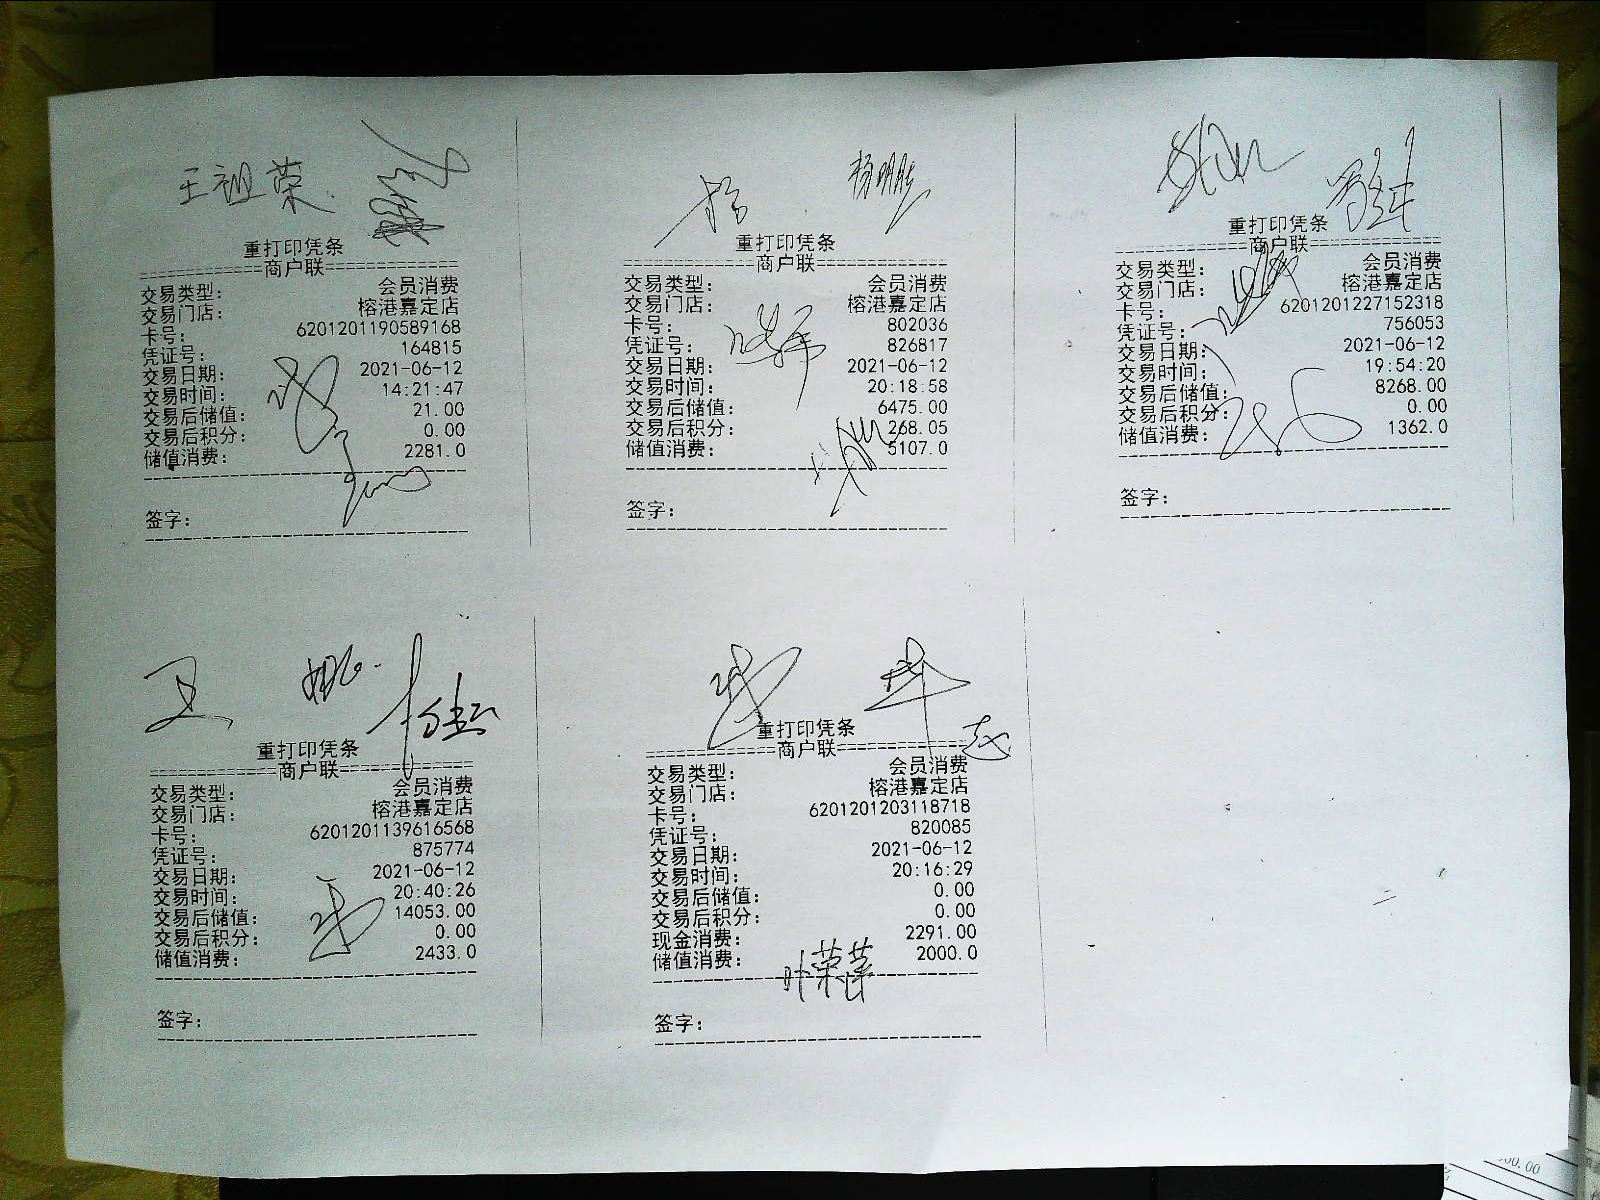 王祖荣
重打印凭条
==========商户联==========
交易类型: 会员消费
交易门店: 榕港嘉定店
卡号: 6201201190589168
凭证号: 164815
交易日期: 2021-06-12
交易时间: 14:21:47
交易后储值: 21.00
交易后积分: 0.00
储值消费: 2281.0
签字:
杨明胜
重打印凭条
==========商户联==========
交易类型: 会员消费
交易门店: 榕港嘉定店
卡号: 802036
凭证号: 826817
交易日期: 2021-06-12
交易时间: 20:18:58
交易后储值: 6475.00
交易后积分: 268.05
储值消费: 5107.0
签字:
重打印凭条
==========商户联==========
交易类型: 会员消费
交易门店: 榕港嘉定店
卡号: 6201201227152318
凭证号: 756053
交易日期: 2021-06-12
交易时间: 19:54:20
交易后储值: 8268.00
交易后积分: 0.00
储值消费: 1362.0
签字:
重打印凭条
==========商户联==========
交易类型: 会员消费
交易门店: 榕港嘉定店
卡号: 6201201139616568
凭证号: 875774
交易日期: 2021-06-12
交易时间: 20:40:26
交易后储值: 14053.00
交易后积分: 0.00
储值消费: 2433.0
签字:
重打印凭条
==========商户联==========
交易类型: 会员消费
交易门店: 榕港嘉定店
卡号: 6201201203118718
凭证号: 820085
交易日期: 2021-06-12
交易时间: 20:16:29
交易后储值: 0.00
交易后积分: 0.00
现金消费: 2291.00
储值消费: 2000.0
签字: